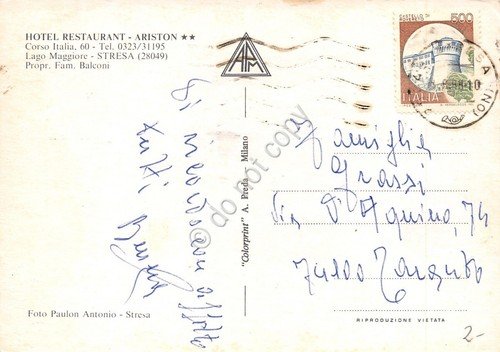 HOTEL RESTAURANT - ARISTON ★★
Corso Italia, 60 - Tel. 0323/31195
Lago Maggiore - STRESA (28049)
Propr. Fam. Balconi
500
ITALIA
Vi ricordiamo
tutti
"Colorprint" A. Preda - Milano
do not copy
Famiglia
Grassi
Via D'Aquino, 74
74100 Taranto
Foto Paulon Antonio - Stresa
RIPRODUZIONE VIETATA
2-